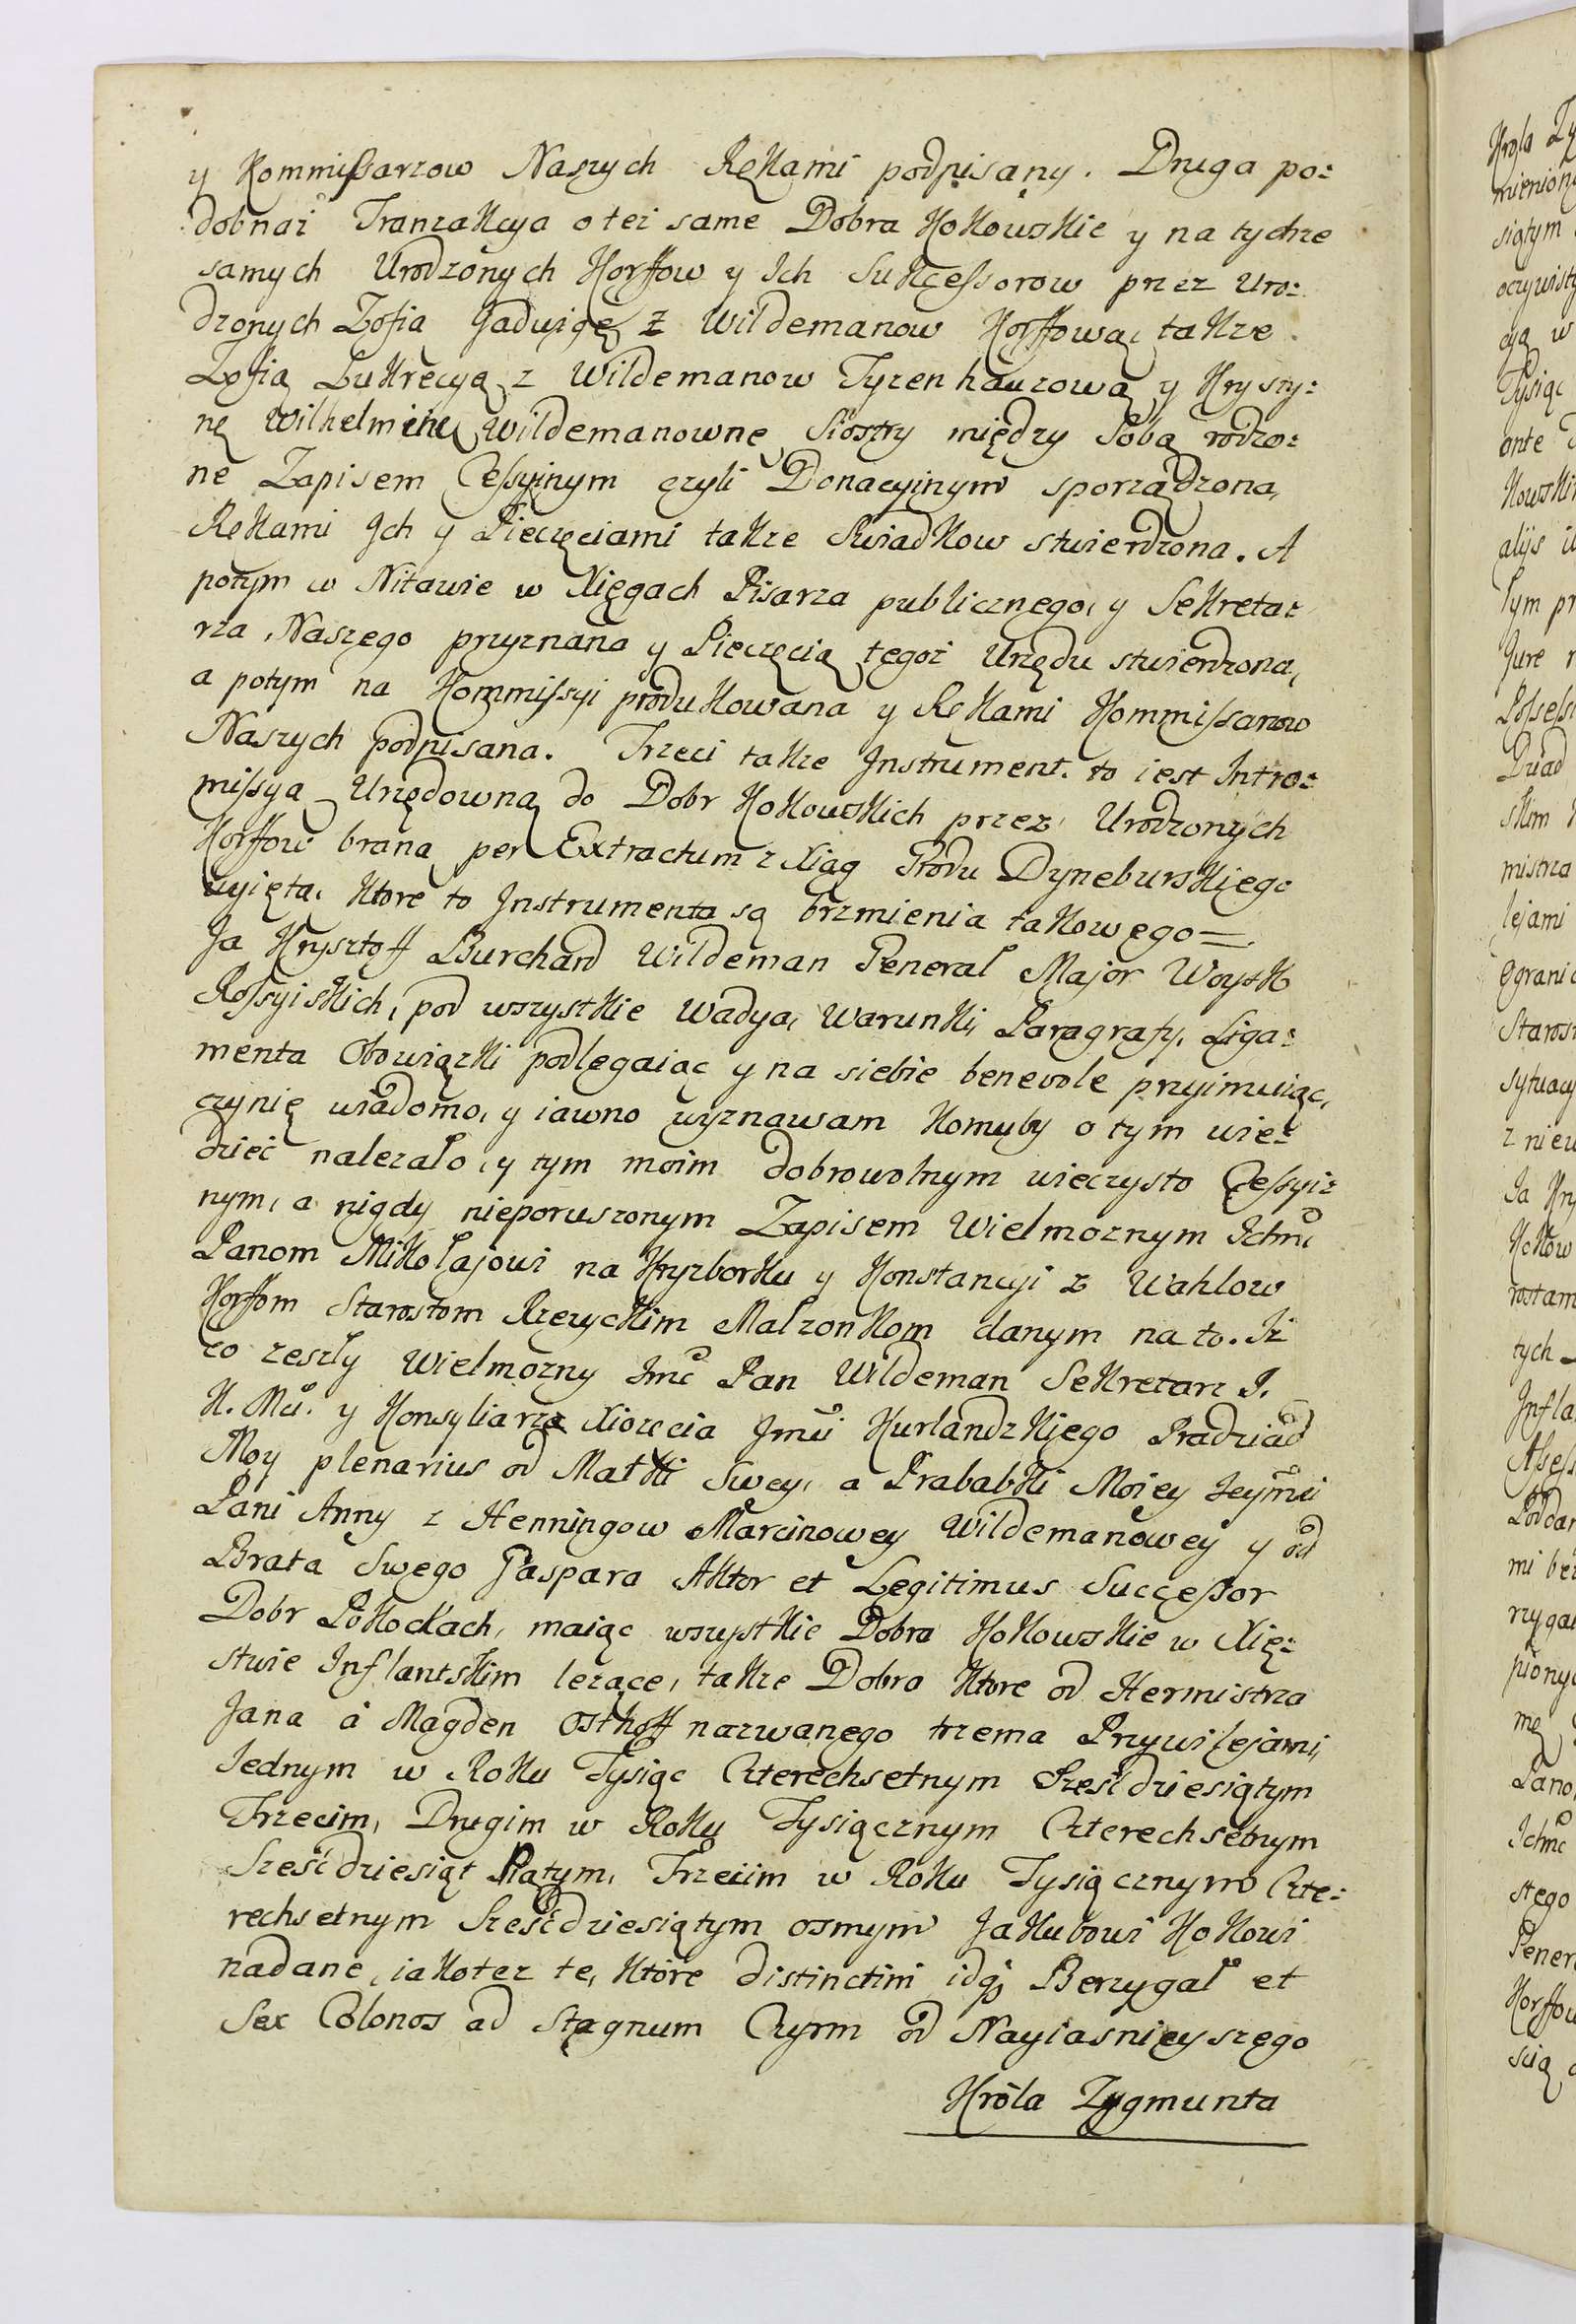 y Kommissarzow Naszych Rękami podpisany. Druga po-
dobnaż Tranzakcya o też same Dobra Kokowskie y na tychze
samych Urodzonych Korffow y Ich Sukcessorow przez Uro-
dzonych Zofią Jadwigę z Wildemanow Korffową, takze
Zofią Lukrecyą z Wildemanow Tyzenhauzową y Krysty-
nę Wilhelminę Wildemanownę Siostry między Sobą rodzo-
ne Zapisem Cessyinym czyli Donacyinym sporządzona,
Rękami Ich y Pieczęciami takze Swiadkow stwierdzona. A
potym w Mitawie w Xięgach Pisarza publicznego, y Sekreta-
rza Naszego przyznana y Pieczęcią tegoż Urzędu stwierdzona,
a potym na Kommissyi produkowana y Rękami Kommissarzow
Naszych podpisana. Trzeci takze Instrument. to iest Intro-
missya Urzędowna do Dobr Kokowskich przez Urodzonych
Korffow brana per Extractum z Xiąg Grodu Dyneburskiego
wyięta, Ktore to Instrumenta są brzmienia takowego =
Ja Krysztoff Burchard Wildeman General Major Woysk
Rossyiskich, pod wszystkie wadya, warunki, Paragrafy, Liga-
menta Obowiązki podlegaiąc y na siebie benevole przyimuiąc,
czynię wiadomo, y iawno wyznawam Komuby o tym wie-
dzieć nalezało, y tym moim dobrowolnym wieczysto Cessyi-
nym, a nigdy nieporuszonym Zapisem Wielmoznym Ichmć
Panom Mikołajowi na Kryzborku y Konstancyi z Wahlow
Korffom Starostom Rzezyckim Małzonkom danym na to. Iż
co zeszły Wielmozny Imć Pan Wildeman Sekretarz J.
K. Mći. y Konsyliarz Xiozęcia Jmći Kurlandzkiego Pradziad
Moy plenarius od Matki Swey, a Prababki Moiey Jeymći
Pani Anny z Henningow Marcinowey Wildemanowey y od
Brata Swego Gaspara Aktor et Legitimus Successor
Dobr Pokockach, maiąc wszystkie Dobra Kokowskie w Xię-
stwie Inflantskim lezące, takze Dobra Ktore od Hermistrza
Jana à Magden Osthoff nazwanego trzema Przywilejami,
Jednym w Roku Tysiąc Czterechsetnym Sześćdziesiątym
Trzecim, Drugim w Roku Tysiącznym Czterechsetnym
Sześćdziesiąt Piątym, Trzecim w Roku Tysiącznym Czte-
rechsetnym Sześćdziesiątym osmym Jakubowi Kokowi
nadane, iakotez te, Ktore distinctim idqz Berzygał et
Sex Colonos ad Stagnum Czyrm od Nayiasnieyszego
Króla Zygmunta